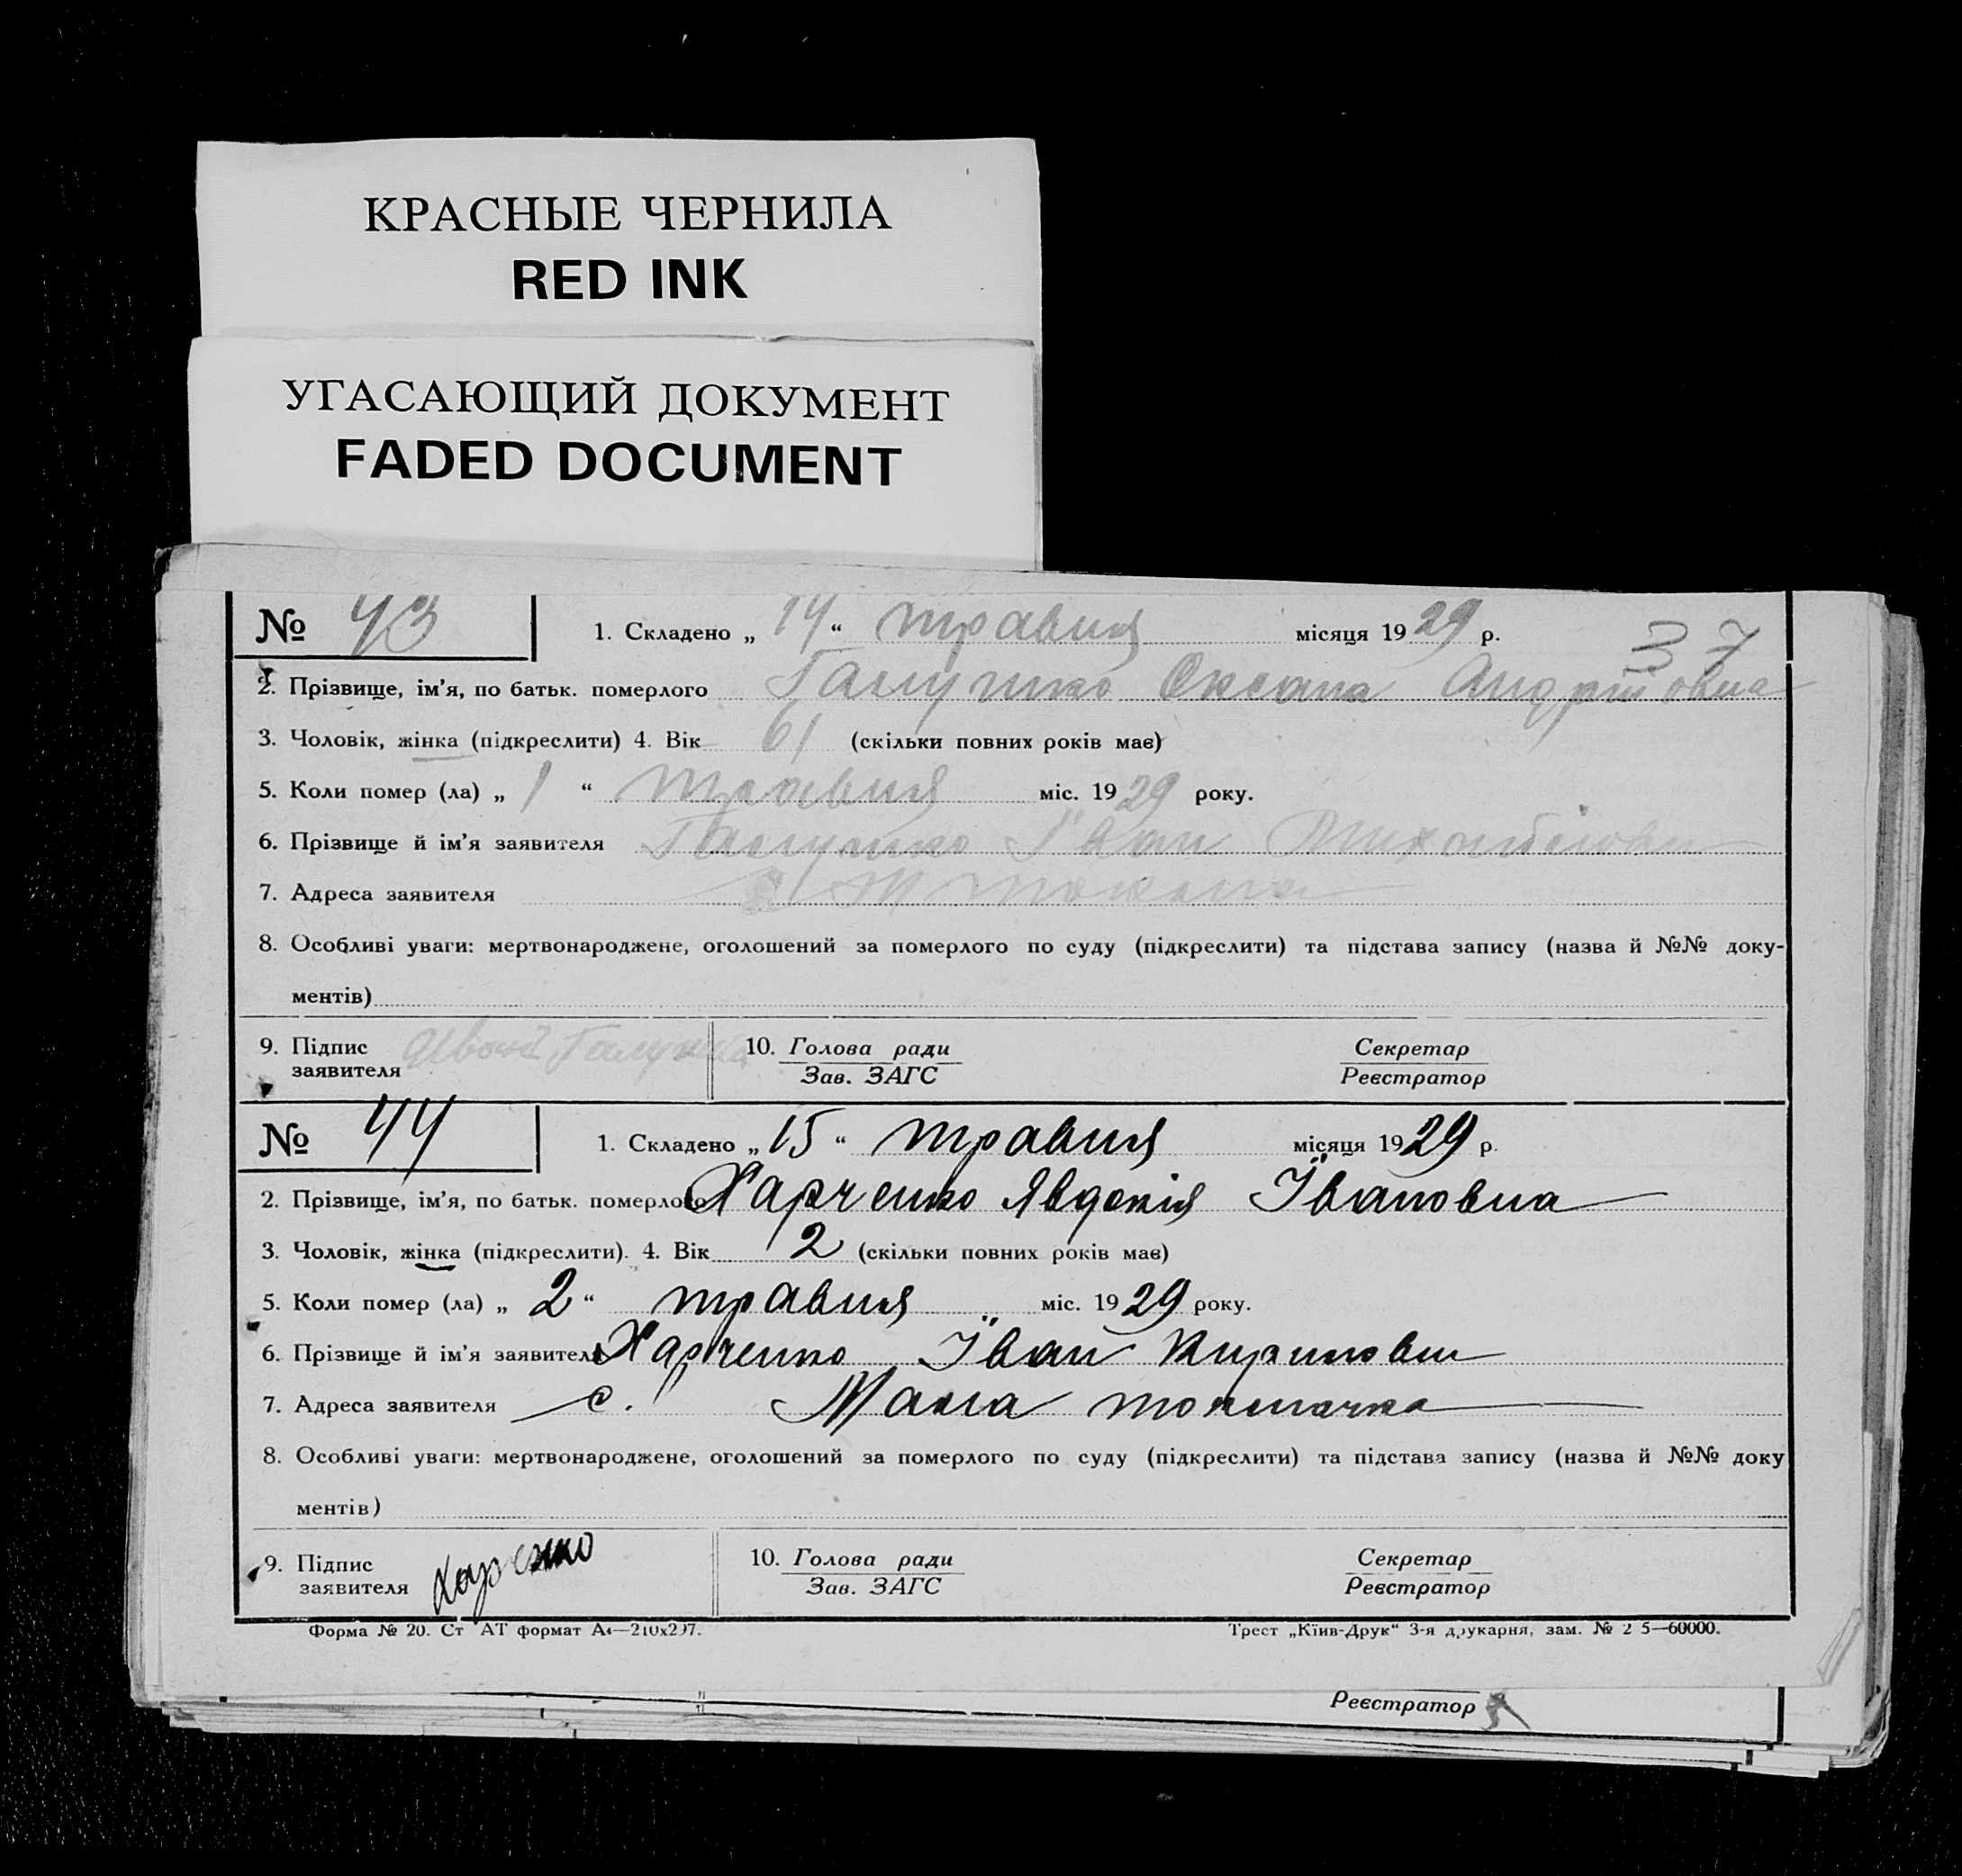 КРАСНЫЕ ЧЕРНИЛА
RED INK
УГАСАЮЩИЙ ДОКУМЕНТ
FADED DOCUMENT
№ 43 1. Складено „ 14 “ травня місяця 1929 р. 37
2. Прізвище, ім’я, по батьк. померлого Галушко Оксана Андріївна
3. Чоловік, жінка (підкреслити) 4. Вік 61 (скільки повних років має)
5. Коли помер (ла) „ 1 “ травня міс. 1929 року.
6. Прізвище й ім’я заявителя Галушко Їван
7. Адреса заявителя
8. Особливі уваги: мертвонароджене, оголошений за померлого по суду (підкреслити) та підстава запису (назва й №№ доку-
ментів)
9. Підпис заявителя 10. Голова ради Секретар
Зав. ЗАГС Реєстратор
№ 44 1. Складено „ 15 “ травня місяця 1929 р.
2. Прізвище, ім’я, по батьк. померлого Харченко Явдокія Ївановна
3. Чоловік, жінка (підкреслити). 4. Вік 2 (скільки повних років має)
5. Коли помер (ла) „ 2 “ травня міс. 1929 року.
6. Прізвище й ім’я заявителя Харченко Їван
7. Адреса заявителя с. Мала токмачка
8. Особливі уваги: мертвонароджене, оголошений за померлого по суду (підкреслити) та підстава запису (назва й №№ доку
ментів)
9. Підпис заявителя Харченко 10. Голова ради Секретар
Зав. ЗАГС Реєстратор
Форма № 20. Ст АТ формат А4—210х297. Трест „Київ-Друк“ 3-я друкарня, зам. № 2 5—60000.
Реєстратор